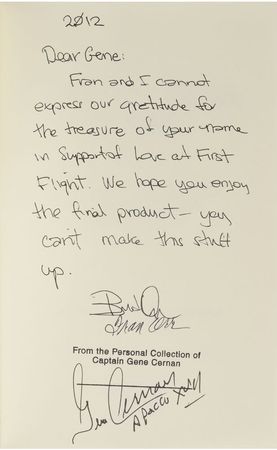 2012
Dear Gene:
Fran and I cannot
express our gratitude for
the treasure of your name
in Support of Love at First
Flight. We hope you enjoy
the final product — you
can't make this stuff
up.
Fran Orr
From the Personal Collection of
Captain Gene Cernan
Gene Cernan
Apollo XVII